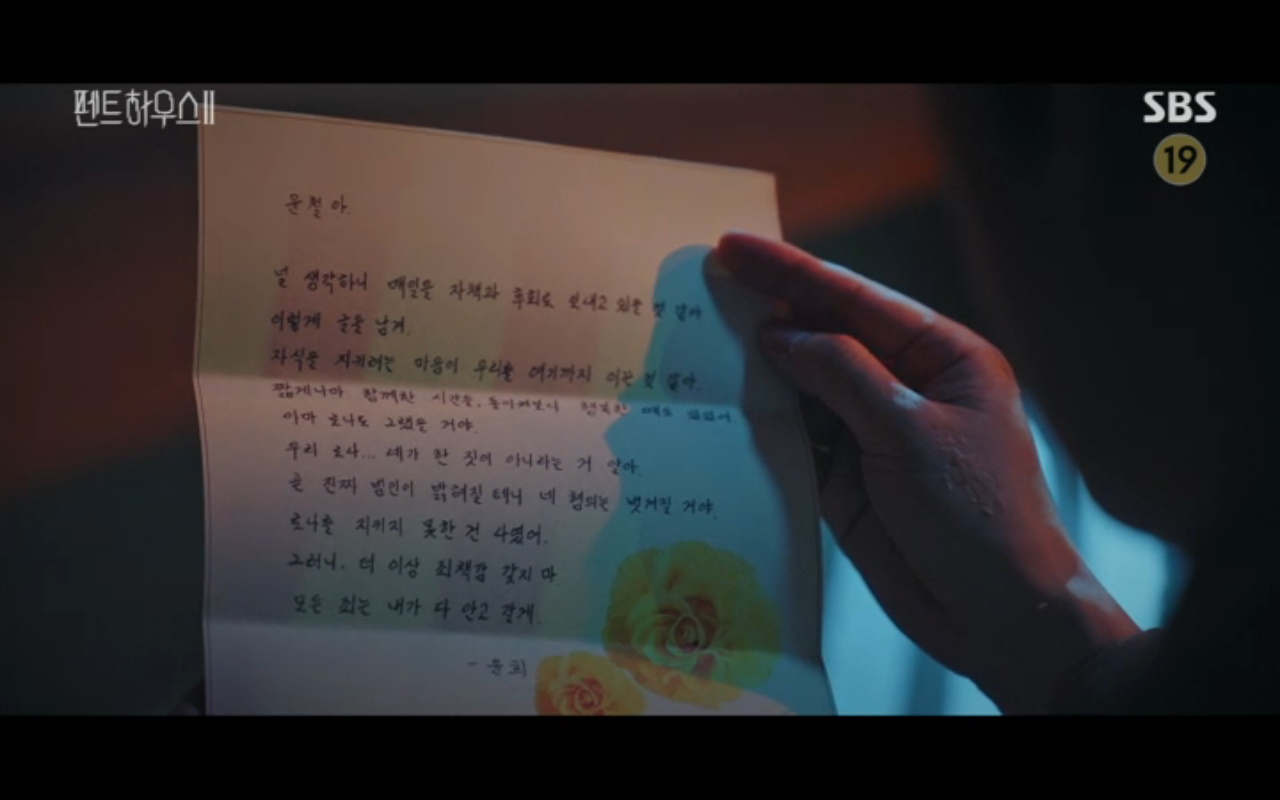 펜트하우스II
SBS
19
윤철아.
널 생각하니 매일을 자책과 후회로 보내고 있을 것 같아
이렇게 글을 남겨.
자식을 지키려는 마음이 우리를 여기까지 이끈 것 같아.
짧게나마 함께한 시간을, 돌이켜보니 행복한 때도 있었어
아마 로나도 그랬을 거야.
우리 로나... 네가 한 짓이 아니라는 거 알아.
곧 진짜 범인이 밝혀질 테니 네 혐의는 벗겨질 거야.
로나를 지키지 못한 건 나였어.
그러니, 더 이상 죄책감 갖지 마
모든 죄는 내가 다 안고 갈게.
- 윤희